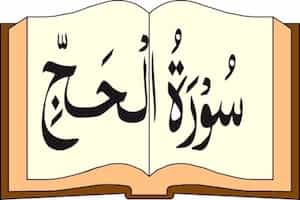 سُورَةُ الْحَجِّ